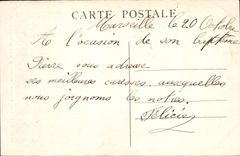 CARTE POSTALE
Marseille le 20 Octobre
A l'occasion de son baptême
Pierre vous adresse
ses meilleures caresses auxquelles
nous joignons les notres.
Félicie